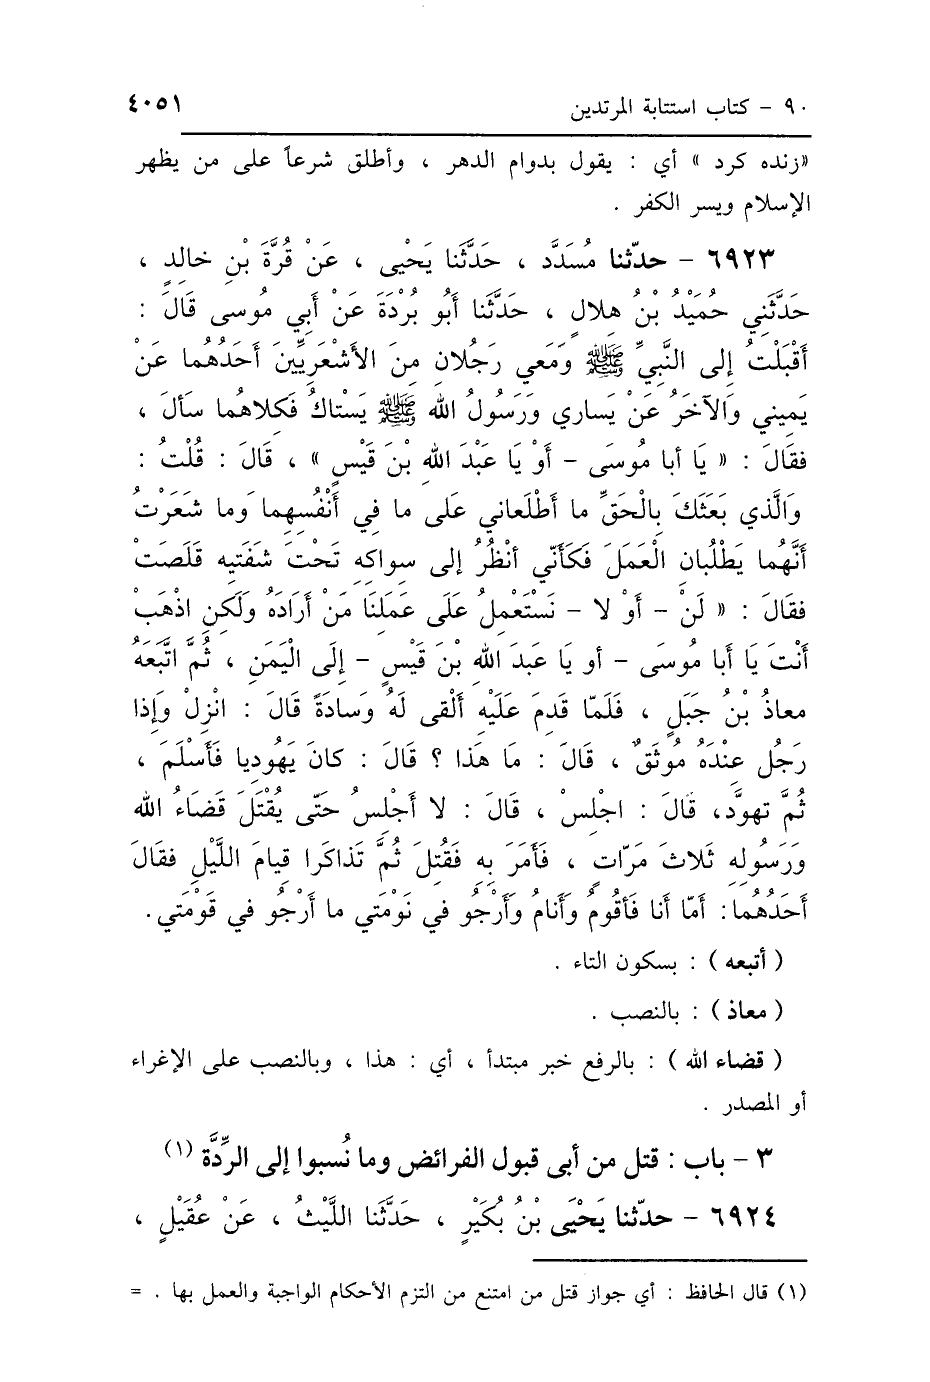 ٩٠ - كتاب استتابة المرتدين ٤٠٥١
«زنده كرد » أي : يقول بدوام الدهر ، وأطلق شرعاً على من يظهر
الإسلام ويسر الكفر .
٦٩٢٣ - حدّثنا مُسَدَّد ، حَدَّثَنا يَحْيى ، عَنْ قُرَّةَ بْنِ خالدٍ ،
حَدَّثَني حُمَيْدُ بْنُ هِلالٍ ، حَدَّثَنا أَبُو بُرْدَةَ عَنْ أَبِي مُوسى قَالَ :
أَقْبَلْتُ إِلى النَّبِيِّ ﷺ وَمَعي رَجُلان مِنَ الأَشْعَرِيِّينَ أَحَدُهُما عَنْ
يَمِيني وَالآخَرُ عَنْ يَساري وَرَسُولُ الله ﷺ يَسْتاكُ فَكلاهُما سَأَلَ ،
فقَالَ : « يَا أبا مُوسَى - أَوْ يَا عَبْدَ اللهِ بْنَ قَيْسٍ » ، قَالَ : قُلْتُ :
وَالَّذي بَعَثَكَ بِالْحَقِّ ما أَطْلَعاني عَلَى ما فِي أَنْفُسِهِما وَما شَعَرْتُ
أَنَّهُما يَطْلُبانِ الْعَمَلَ فَكَأَنّي أنْظُرُ إلى سواكِهِ تَحْتَ شَفَتِيه قَلَصَتْ
فقَالَ : « لَنْ - أَوْ لا - نَسْتَعْمِلُ عَلَى عَمَلنَا مَنْ أَرَادَهُ وَلَكن اذْهَبْ
أَنْتَ يَا أَبا مُوسَى - أو يَا عَبدَ اللهِ بْنَ قَيْسٍ - إِلَى الْيَمَنِ ، ثُمَّ اتَّبَعَهُ
معاذُ بْنُ جَبَلٍ ، فَلَمّا قَدِمَ عَلَيْهِ أَلْقى لَهُ وسَادَةً قَالَ : انْزِلْ وَإِذا
رَجُل عِنْدَهُ مُوثَقٌ ، قَالَ : مَا هَذا ؟ قَالَ : كانَ يَهُوديا فَأَسْلَمَ ،
ثُمَّ تهودَّ، قَالَ : اجْلِسْ ، قَالَ : لا أَجْلِسُ حَتّى يُقْتَلَ قَضَاءُ الله
وَرَسُولِهِ ثَلاثَ مَرّاتٍ ، فَأَمَرَ بِهِ فَقُتلَ ثُمَّ تَذاكَرا قِيامَ اللَّيْلِ فقَالَ
أَحَدُهُما: أَمّا أَنا فَأَقُومُ وَأَنامُ وَأَرْجُو في نَوْمَتي ما أَرْجُو في قَوْمَتي.
( أتبعه ) : بسكون التاء .
( معاذ ) : بالنصب .
( قضاء الله ) : بالرفع خبر مبتدأ ، أي : هذا ، وبالنصب على الإغراء
أو المصدر .
٣ - باب : قتل من أبى قبول الفرائض وما نُسبوا إلى الرِّدَّة (١)
٦٩٢٤ - حدّثنا يَحْيَى بْنُ بُكَيْرٍ ، حَدَّثَنا اللَّيْثُ ، عَنْ عُقَيْلٍ ،
(١) قال الحافظ : أي جواز قتل من امتنع من التزم الأحكام الواجبة والعمل بها . =